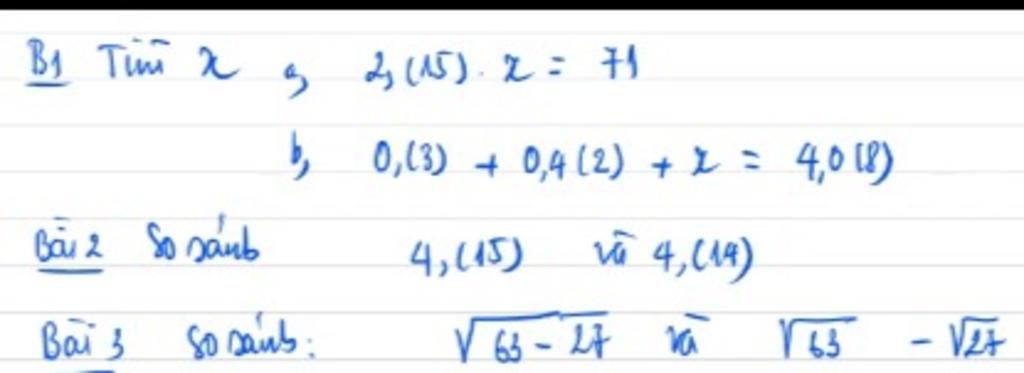 B1 Tìm x a, 2,(15) . x = 71
b, 0,(3) + 0,4(2) + x = 4,0(8)
Bài 2 So sánh 4,(15) và 4,(14)
Bài 3 So sánh: √63 - 27 và √63 - √27